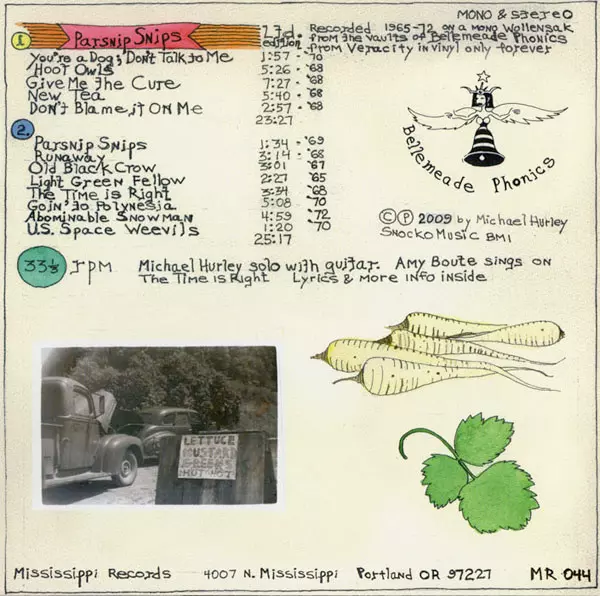 MONO & STEREO
1 Parsnip Snips
Ltd. edition
Recorded 1965-72 on a mono Wollensak
from the vaults of Bellemeade Phonics
from Veracity in vinyl only forever
You're a Dog; Don't Talk to Me 1:57 - '70
Hoot Owls 5:26 - '68
Give Me The Cure 7:27 - '68
New Tea 5:40 - '68
Don't Blame it On Me 2:57 - '68
23:27
2.
Parsnip Snips 1:34 - '69
Runaway 3:14 - '66
Old Black Crow 3:01 - '67
Light Green Fellow 2:27 - '65
The Time is Right 3:34 - '68
Goin' to Polynesia 5:08 - '70
Abominable Snowman 4:59 - '72
U.S. Space Weevils 1:20 - '70
25:17
Bellemeade Phonics
© ℗ 2009 by Michael Hurley
Snocko Music BMI
33⅓ rpm
Michael Hurley solo with guitar. Amy Boute sings on
The Time is Right Lyrics & More info inside
LETTUCE
MUSTARD
GREENS
Mississippi Records 4007 N. Mississippi Portland OR 97227 MR 044